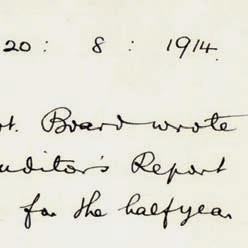 20 : 8 : 1914.
Board wrote
uditor's Report
for the halfyear